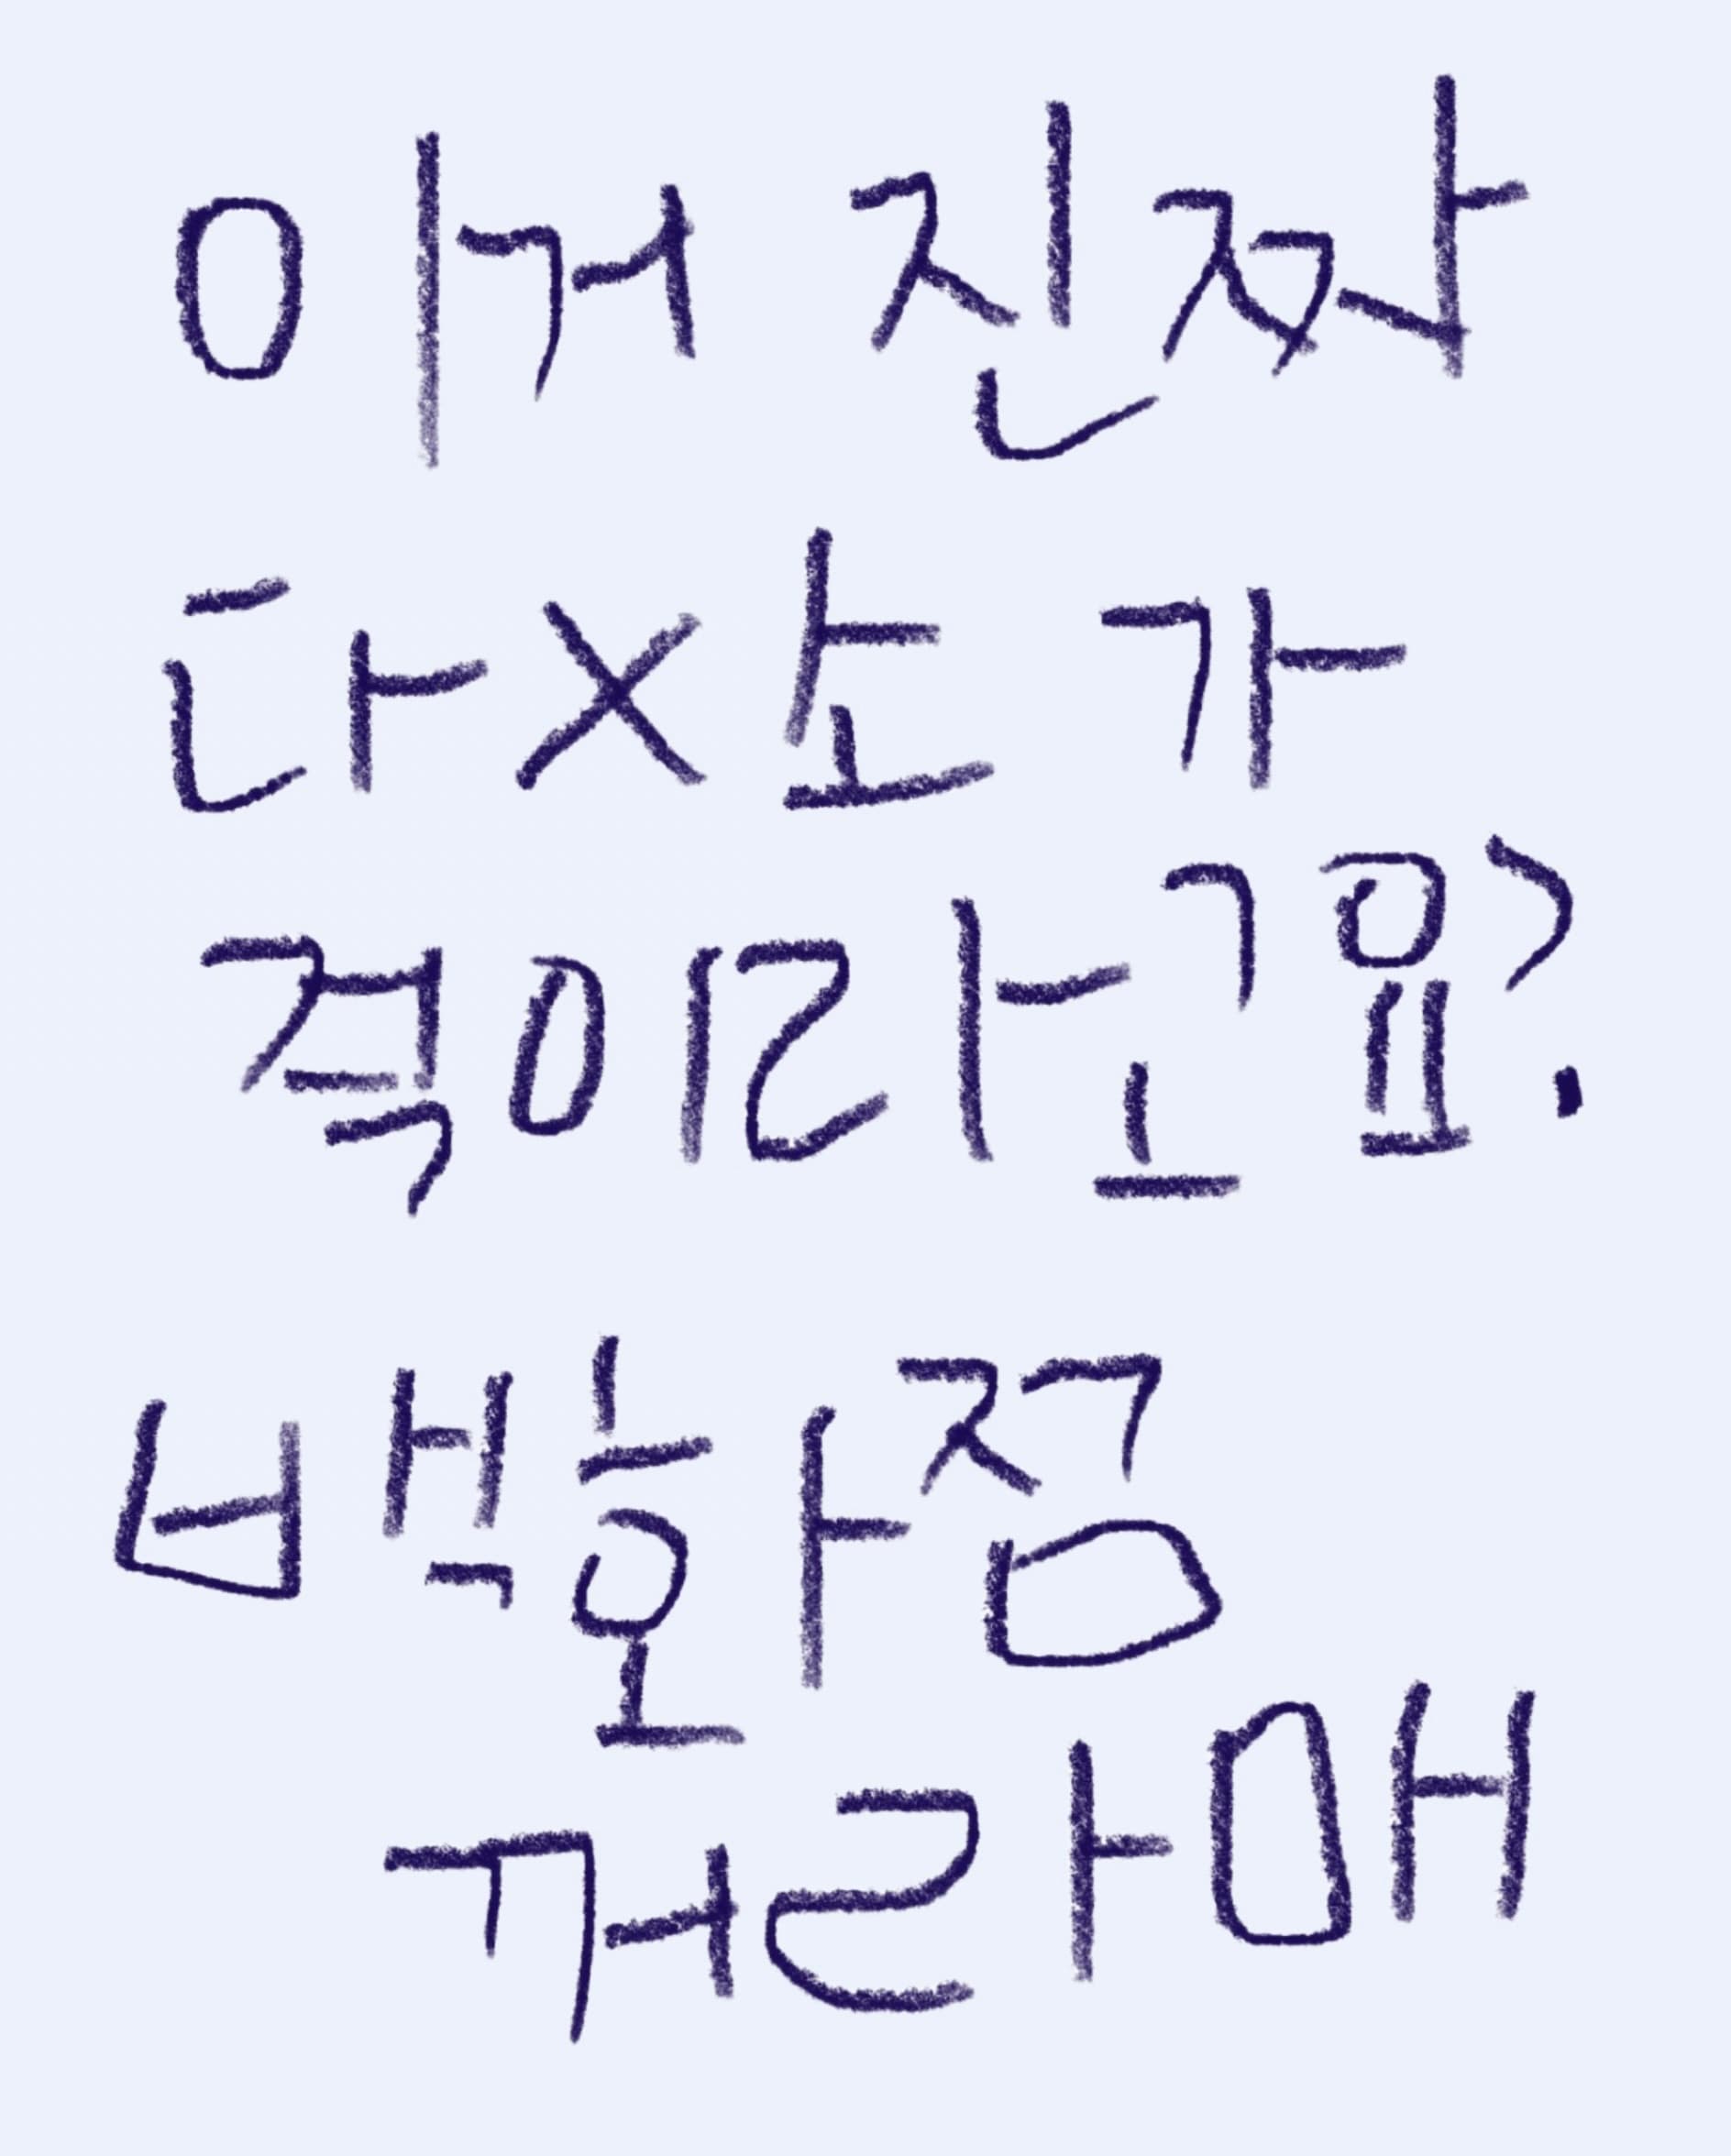 이거 진짜
다X소 가
격이라고요?
백화점
꺼라매